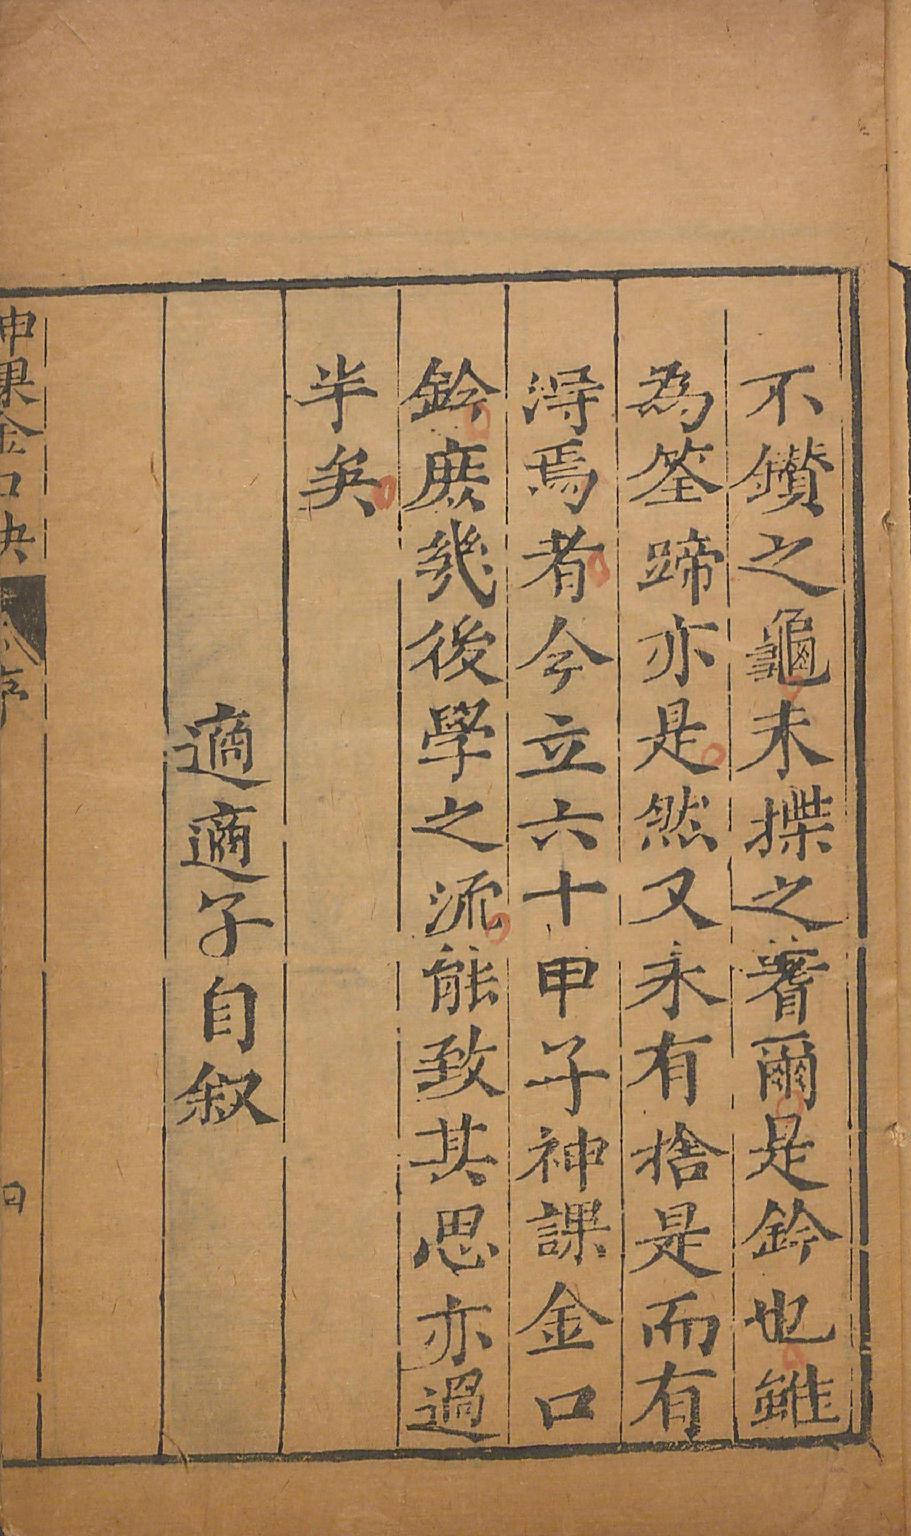 不鑚之龜未揲之蓍爾是鈐也雖
為筌蹄亦是然又未有捨是而有
得焉者今立六十甲子神課金口
鈐庶幾後學之流能致其思亦過
半矣
適適子自叙
神課金口訣
序